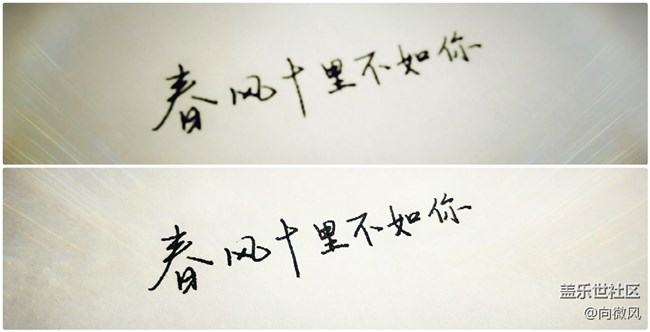 春风十里不如你
春风十里不如你
盖乐世社区
@向微风